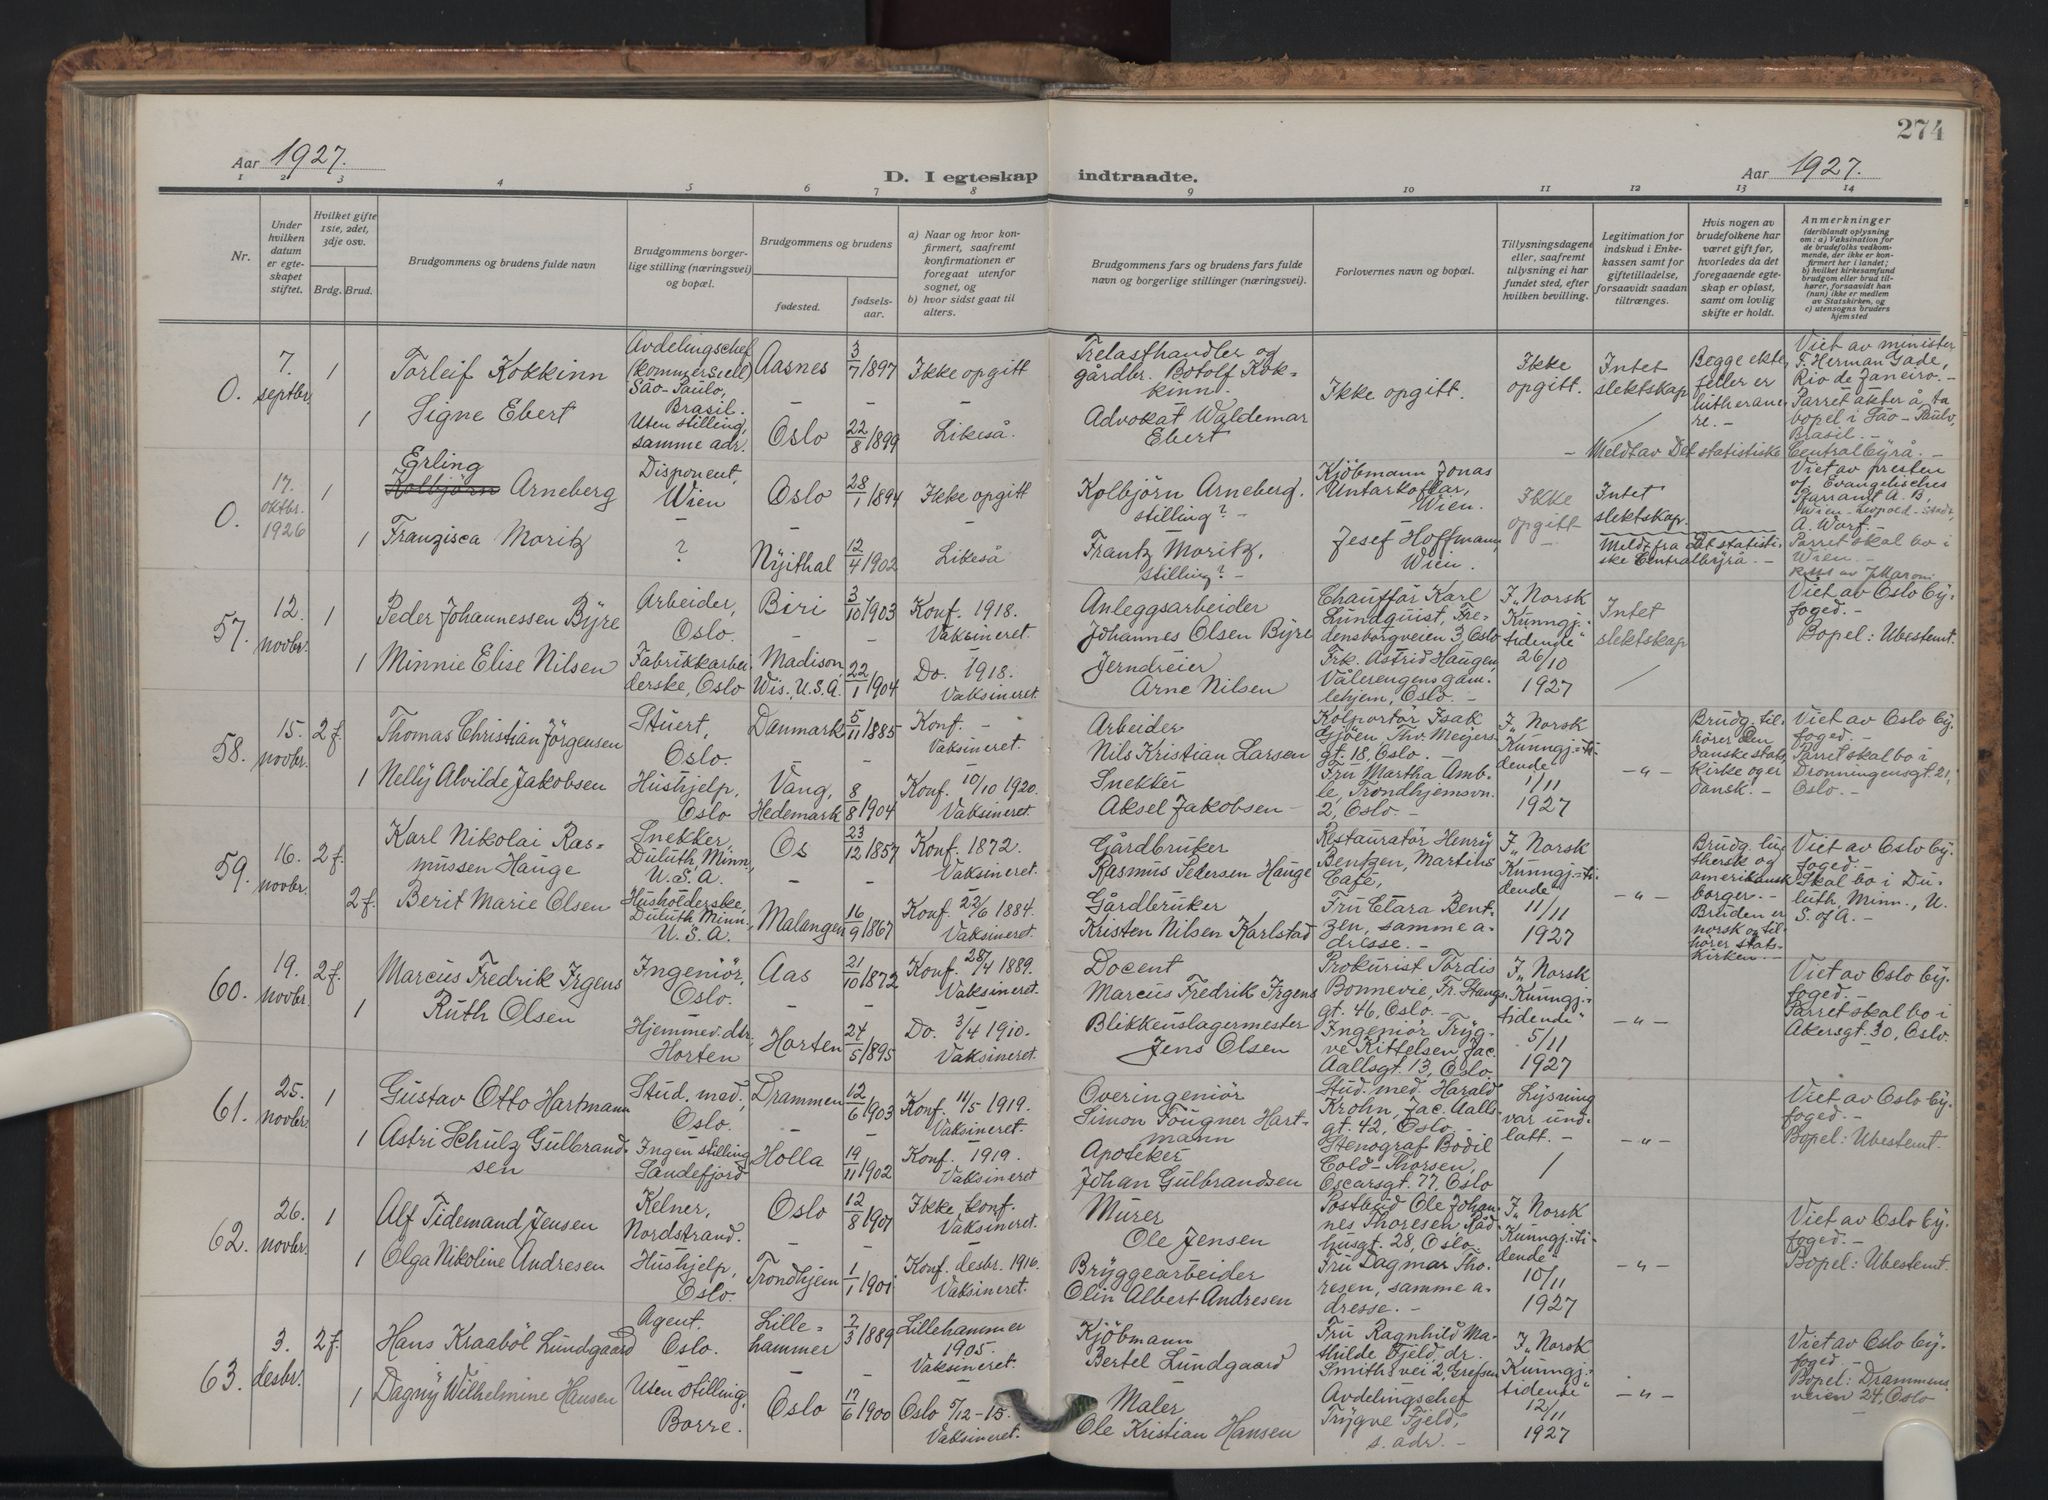 274
Aar 1927.
D. I egteskap indtraadte.
Aar 1927.
1 2 3 4 5 6 7 8 9 10 11 12 13 14
Nr.
Under hvilken datum er egteskapet stiftet.
Hvilket gifte 1ste, 2det, 3dje osv.
Brdg. Brud.
Brudgommens og brudens fulde navn
Brudgommens borgerlige stilling (næringsvei) og bopæl.
Brudgommens og brudens
fødested.
fødselsaar.
a) Naar og hvor konfirmert, saafremt konfirmationen er foregaat utenfor sognet, og
b) hvor sidst gaat til alters.
Brudgommens fars og brudens fars fulde navn og borgerlige stillinger (næringsvei).
Forlovernes navn og bopæl.
Tillysningsdagene eller, saafremt tillysning ei har fundet sted, efter hvilken bevilling.
Legitimation for indskud i Enkekassen samt for giftetilladelse, forsaavidt saadan tiltrænges.
Hvis nogen av brudefolkene har været gift før, hvorledes da det foregaaende egteskap er opløst, samt om lovlig skifte er holdt.
Anmerkninger
(deriblandt oplysning om: a) Vaksination for de brudefolks vedkommende, der ikke er konfirmert her i landet; b) hvilket kirkesamfund brudgom eller brud tilhører, forsaavidt han (hun) ikke er medlem av Statskirken, og c) utensogns bruders hjemsted
0.
7. septbr.
1
Torleif Kokkinn
Avdelingschef (kommersiell) São-Paulo, Brasil.
Aasnes
3/7 1897
Ikke opgitt
Trelasthandler og gårdbr. Botolf Kokkinn
Ikke opgitt.
Ikke opgitt.
Intet slektskap
Begge ektefeller er lutheranere. -
Viet av minister F. Herman Gade, Rio de Janeiro. -
Parret akter å ta bopel i São-Paulo, Brasil. -
1
Signe Ebert
Uten stilling, samme adr.
Oslo
22/8 1899
Likeså.
Advokat Waldemar Ebert
- Meldt av Det statistiske Centralbyrå. -
0.
17. oktbr. 1926
1
Erling
Kolbjörn Arneberg
Disponent, Wien
Oslo
28/1 1894
Ikke opgitt
Kolbjörn Arneberg. stilling? -
Kjöbmann Jonas Untarkoflar, Wien.
Ikke opgitt
Intet slektskap.
Viet av presten v/ Evangelisches Pfarramt A. B., Wien-Leopold-stadt, A. Warf. -
1
Franzisca Moritz
?
Nyithal
12/4 1902
Likeså
Frantz Moritz. stilling? -
Josef Hoffmann, Wien.
Meldt fra Det statistiske Centralbyrå. -
Parret skal bo i Wien.
57.
12. novbr.
1
Peder Johannessen Byre
Arbeider, Oslo.
Biri
3/10 1903
Konf. 1918. Vaksineret.
Anleggsarbeider Johannes Olsen Byre
Chauffør Karl Lundquist, Fredensborgveien 3, Oslo
I „Norsk Kunngj.tidende" 26/10 1927
Intet slektskap
Viet av Oslo byfoged. -
Bopel: Ubestemt.
1
Minnie Elise Nilsen
Fabrikkarbeiderske, Oslo
Madison, Wis., U.S.A.
22/1 1904
Do. 1918. Vaksineret.
Jerndreier Arne Nilsen
Frk. Astrid Haugen, Vålerengens gamlehjem, Oslo. -
58.
15. novbr.
2 f.
Thomas Christian Jörgensen
Stuert, Oslo.
Danmark
5/11 1885
Konf. - Vaksineret.
Arbeider Nils Kristian Larsen
Kolportør Isak Gjöen, Thv. Meyersgt. 18, Oslo. -
I „Norsk Kunngj.-tidende" 1/11 1927
- " -
Brudg. tilhører den danske statskirke og er dansk. -
Viet av Oslo byfoged. -
Parret skal bo i Dronningensgt. 21, Oslo. -
1
Nelly Alvilde Jakobsen
Hushjelp, Oslo
Vang, Hedemark
8/8 1904
Konf. 10/10 1920. Vaksineret.
Snekker Aksel Jakobsen -
Fru Martha Amble, Trondhjemsvn. 2, Oslo. -
59.
16. novbr.
2 f.
Karl Nikolai Rasmussen Hauge
Snekker, Duluth, Minn., U.S.A.
Os
23/12 1857
Konf. 1872. Vaksineret.
Gårdbruker Rasmus Pedersen Hauge
Restauratør Henry Bentzen, Martins Café,
I „Norsk Kunngj.-tidende" 11/11 1927
- " -
Brudg. luthersk og amerikansk borger. - Bruden er norsk og tilhører statskirken. -
Viet av Oslo byfoged. -
Skal bo i Duluth, Minn., U.S. of A. -
2 f.
Berit Marie Olsen
Husholderske, Duluth Minn., U.S.A.
Malangen
16/9 1867
Konf. 22/6 1884. Vaksineret.
Gårdbruker Kristen Nilsen Karlstad
Fru Clara Bentzen, samme adresse. -
60.
19. novbr.
2 f.
Marcus Fredrik Irgens
Ingeniör, Oslo.
Aas
21/10 1872
Konf. 28/4 1889. Vaksineret.
Docent Marcus Fredrik Irgens
Prokurist Tordis Bonnevie, Fr. Stangsgt. 46, Oslo. -
I „Norsk Kunngj.-tidende" 5/11 1927
- " -
Viet av Oslo byfoged. -
Parret skal bo i Akersgt. 30, Oslo.
1
Ruth Olsen
Hjemmev. dtr., Horten
Horten
24/5 1895
Do. 3/4 1910. Vaksineret.
Blikkenslagermester Jens Olsen
Ingeniør Trygve Kittelsen, Jac. Aallsgt. 13, Oslo.
61.
25. novbr.
1
Gustav Otto Hartmann
Stud. med., Oslo.
Drammen
12/6 1903
Konf. 11/5 1919. Vaksineret.
Overingeniör Simon Fougner Hartmann
Stud. med. Harald Krohn, Jac. Aallsgt. 42, Oslo. -
Lysning var undlatt. -
- " -
Viet av Oslo byfoged. -
Bopel: Ubestemt.
1
Astri Schulz Gulbrandsen
Ingen stilling Sandefjord
Holla
19/11 1902
Konf. 1919. Vaksineret
Apoteker Johan Gulbrandsen
Stenograf Bodil Cold-Thorsen, Oscarsgt. 77, Oslo
62.
26. novbr.
1
Alf Tidemand Jensen
Kelner, Nordstrand.
Oslo
12/8 1901
Ikke konf. Vaksineret.
Murer Ole Jensen
Postbud Ole Johannes Thoresen, Rådhusgt. 28, Oslo.
I „Norsk Kunngj.-tidende" 10/11 1927
- " -
Viet av Oslo byfoged. -
Bopel: Ubestemt.
1
Olga Nikoline Andresen
Hushjelp, Oslo.
Trondhjem
1/1 1901
Konf. desbr. 1916. Vaksineret.
Bryggearbeider Olin Albert Andresen
Fru Dagmar Thoresen, samme adresse. -
63.
3. desbr.
2 f.
Hans Kraaböl Lundgaard
Agent. Oslo.
Lillehammer
7/3 1889
Lillehammer 1905. Vaksineret.
Kjöbmann Bertel Lundgaard
Fru Ragnhild Mathilde Fjeld, dr. Smiths vei 2, Grefsen
I „Norsk Kunngj.-tidende" 12/11 1927
- " -
Viet av Oslo byfoged. -
Bopel: Drammensveien 24, Oslo
1
Dagny Wilhelmine Hansen
Uten stilling, Borre.
Oslo
17/6 1900
Oslo 5/12-15. Vaksineret.
Maler Ole Kristian Hansen
Avdelingschef Trygve Fjeld, s. adr. -